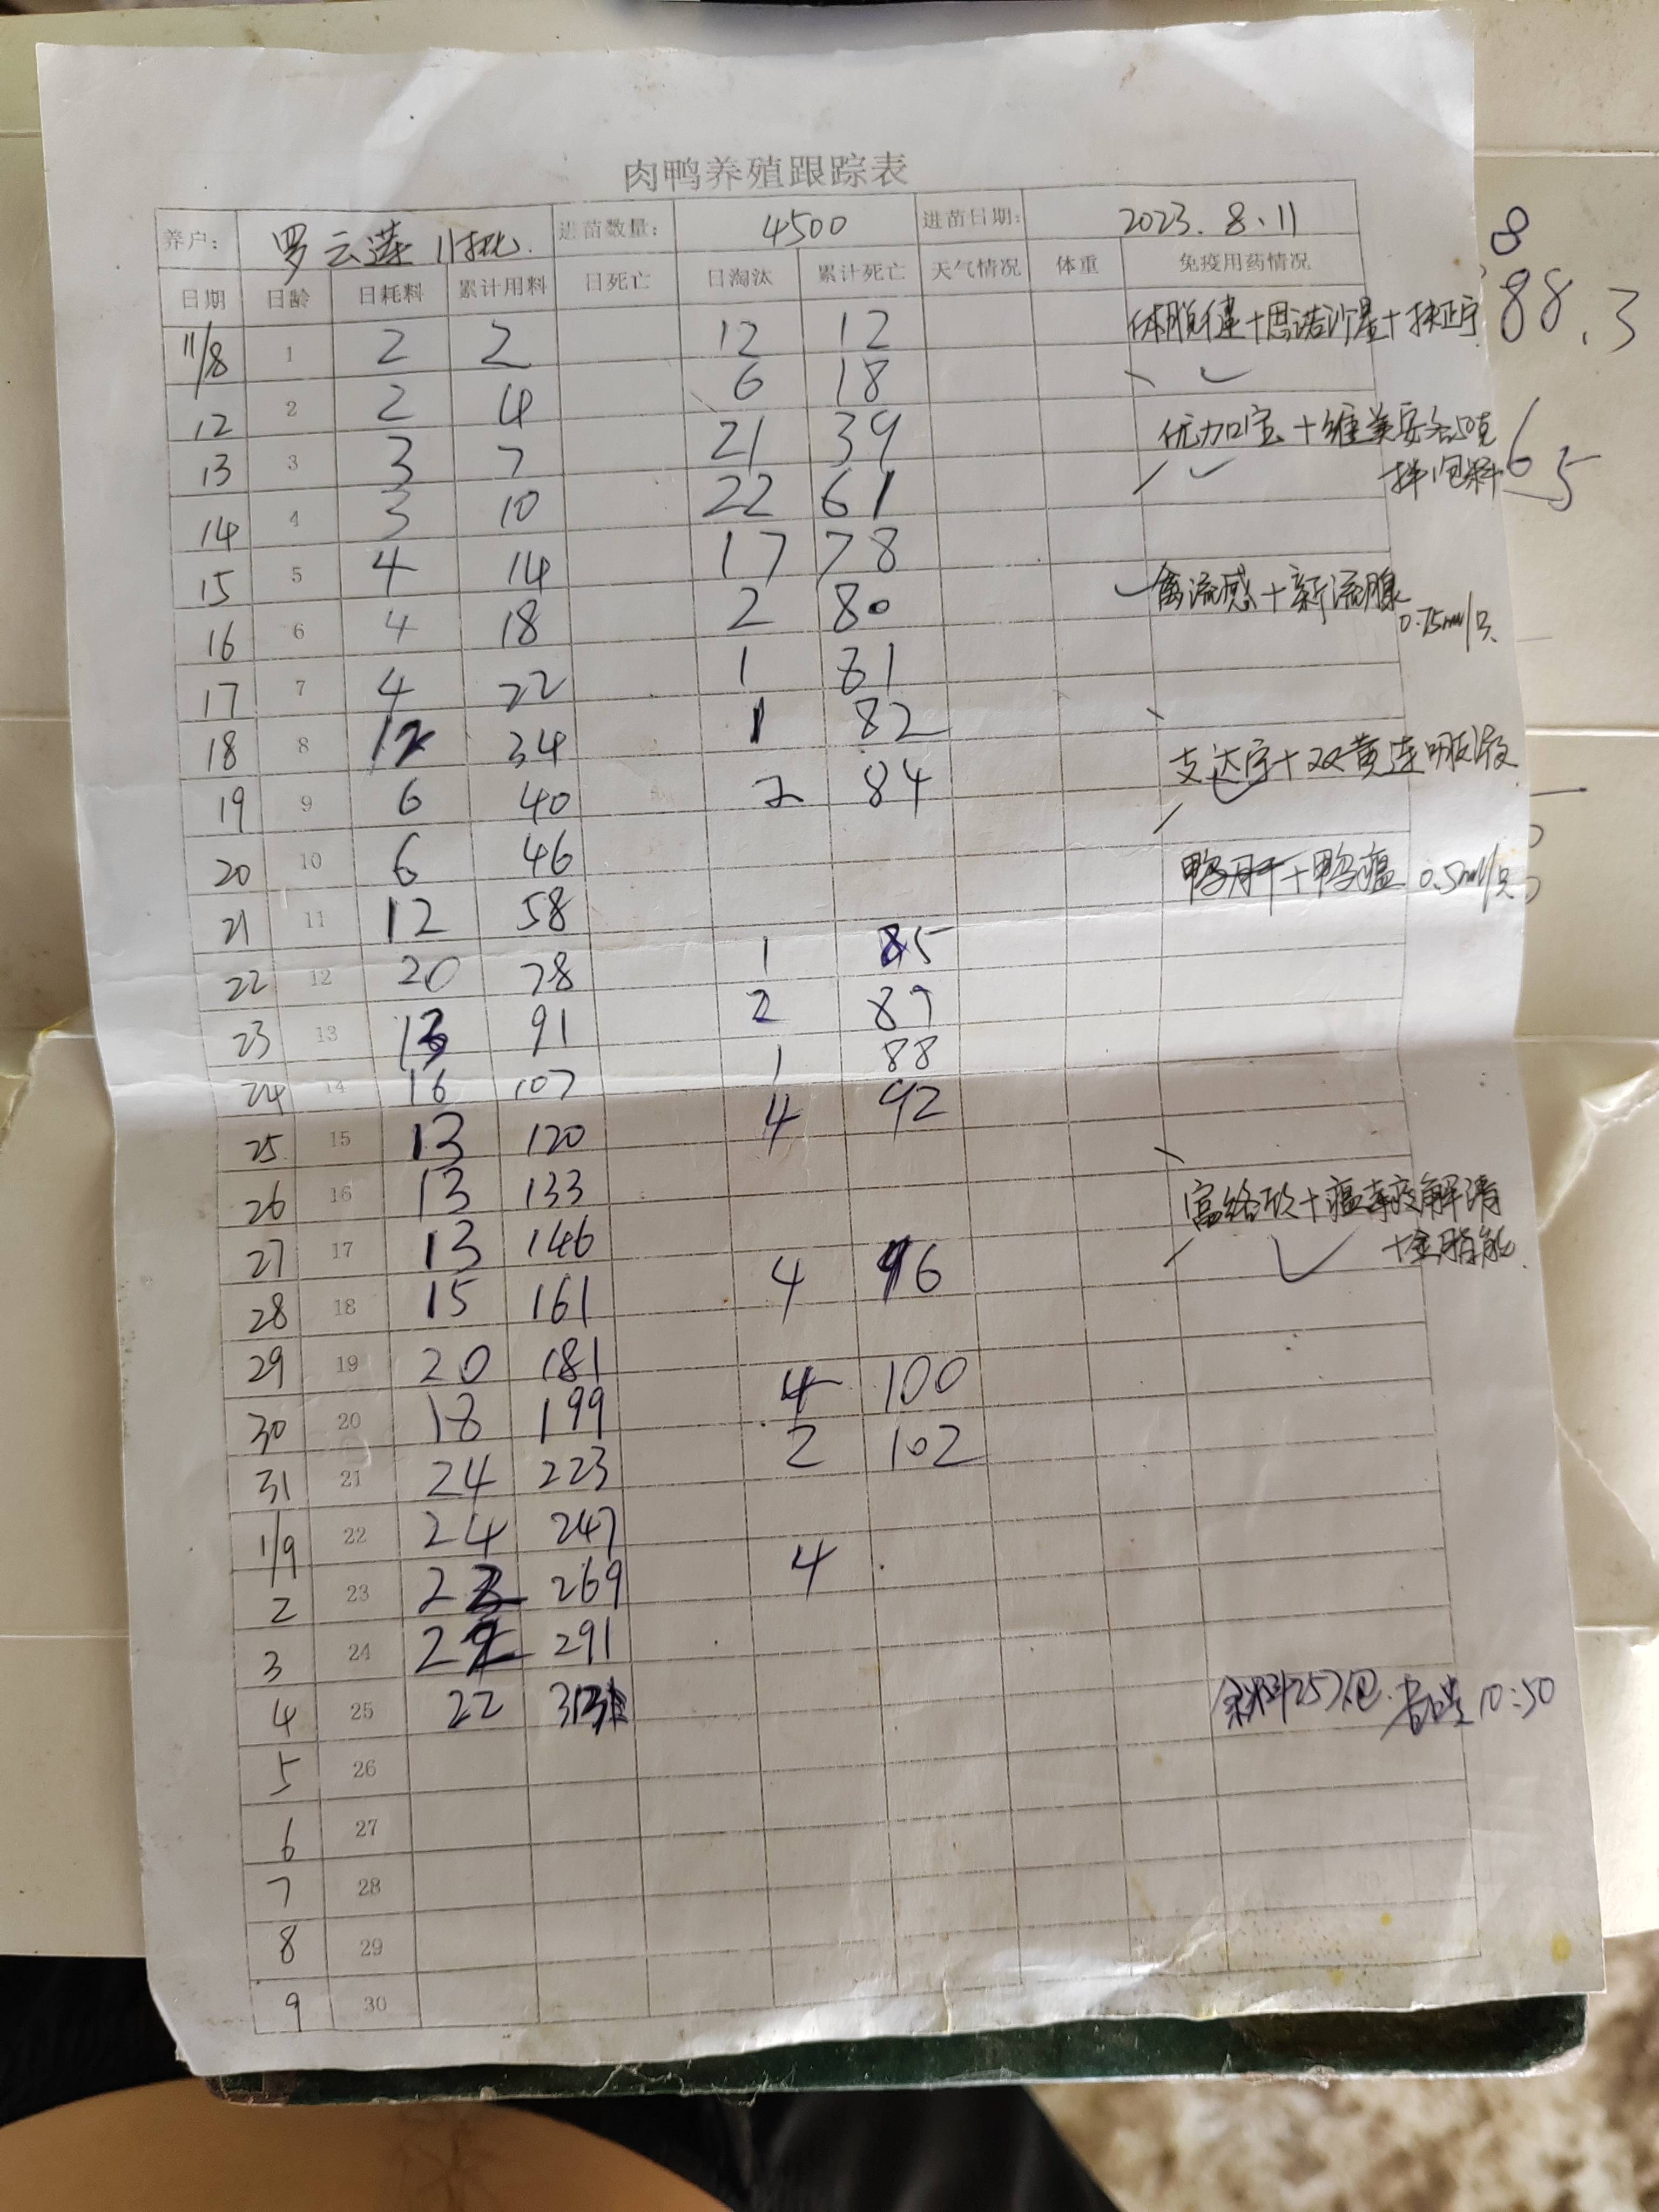 肉鸭养殖跟踪表
养户: 罗云莲 11批. 进苗数量: 4500 进苗日期: 2023.8.11
日期 日龄 日耗料 累计用料 日死亡 日淘汰 累计死亡 天气情况 体重 免疫用药情况
11/8 1 2 2 12 12
12 2 2 4 6 18
13 3 3 7 21 39
14 4 3 10 22 61
15 5 4 14 17 78
16 6 4 18 2 80 禽流感+新流腺
17 7 4 22 1 81
18 8 12 34 1 82
19 9 6 40 2 84 支达宁+双黄连口服液
20 10 6 46
21 11 12 58 鸭肝+鸭瘟 0.5ml/只
22 12 20 78 1 85
23 13 13 91 2 87
24 14 16 107 1 88
25 15 13 120 4 92
26 16 13 133
27 17 13 146
28 18 15 161 4 96
29 19 20 181
30 20 18 199 4 100
31 21 24 223 2 102
1/9 22 24 247
2 23 22 269 4
3 24 22 291
4 25 22 313 余料257包. 10:50
5 26
6 27
7 28
8 29
9 30
8
88.3
65